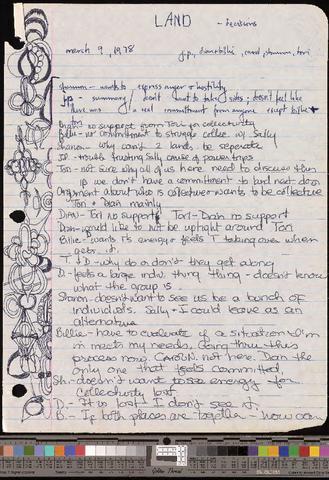 LAND - decisions
march 9, 1978 j.p., dian, billie, carol, sharon, tori
sharon - wants to express anger & hostility
jp - summary / don't want to take sides; doesn't feel like
there was a real commitment from anyone except billie
+ tori
Dian - no support from Tori for collectivity
Billie - no commitment to struggle collec. w/ Sally
Sharon - Why can't 2 lands be separate
J.P. - trouble trusting Sally cause of power trips
Tori - not sure why all of us here need to discuss this
if we don't have a commitment to land next door
Argument about who is collective & wants to be collective
Tori & Dian mainly
Dian - Tori no support Tori - Dian no support
Dian - would like to not be uptight around Tori
Billie - wants T's energy & feels T taking over when
gets it.
T & D - why do & don't they get along
D - feels a large indiv. thing - doesn't know
what the group is
Sharon - doesn't want to see us be a bunch of
individuals. Sally & I could leave as an
alternative
Billie - have to evaluate if a situation I'm
in meets my needs, doing thru this
process now. Carol N. not here. Dian the
only one that feels committed.
Sh. - doesn't want to see energy for
collectivity lost
D. - It is lost. I don't see it.
B. - If both places are together - how can